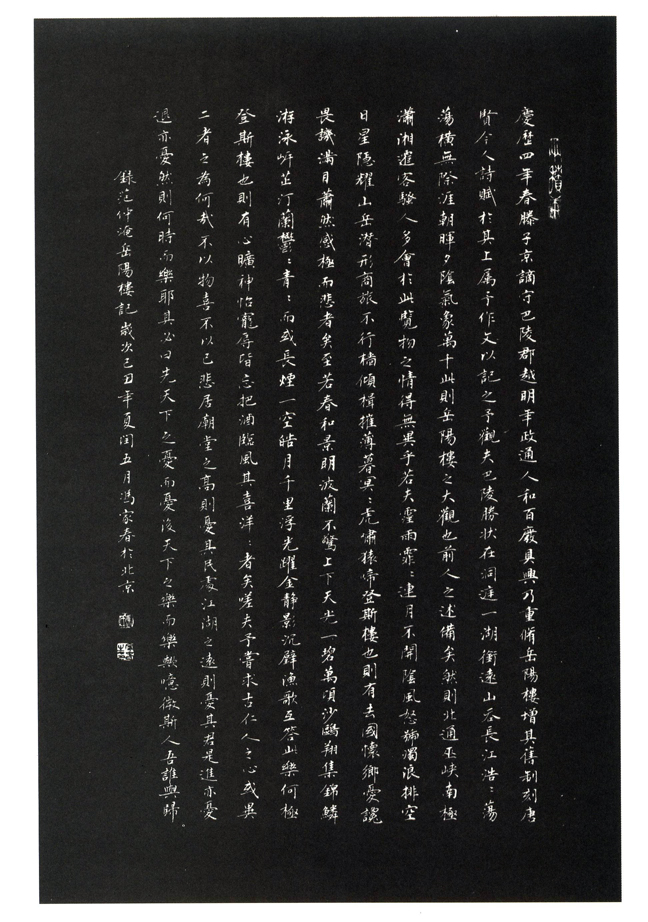 慶歷四年春滕子京謫守巴陵郡越明年政通人和百廢具興乃重脩岳陽樓增其舊制刻唐
賢今人詩賦於其上属予作文以記之予觀夫巴陵勝狀在洞庭一湖銜遠山吞長江浩〻蕩
蕩橫無際涯朝暉夕陰氣象萬千此則岳陽樓之大觀也前人之述備矣然則北通巫峽南極
瀟湘遷客騷人多會於此覽物之情得無異乎若夫霪雨霏〻連月不開陰風怒號濁浪排空
日星隱耀山岳潛形商旅不行檣傾楫摧薄暮冥〻虎嘯猿啼登斯樓也則有去國懷鄉憂讒
畏譏滿目蕭然感極而悲者矣至若春和景明波瀾不驚上下天光一碧萬頃沙鷗翔集錦鱗
游泳岸芷汀蘭鬱〻青〻而或長煙一空皓月千里浮光躍金静影沉璧漁歌互答此樂何極
登斯樓也則有心曠神怡寵辱皆忘把酒臨風其喜洋〻者矣嗟夫予嘗求古仁人之心或異
二者之為何哉不以物喜不以己悲居廟堂之高則憂其民處江湖之遠則憂其君是進亦憂
退亦憂然則何時而樂耶其必曰先天下之憂而憂後天下之樂而樂歟噫微斯人吾誰與歸
錄范仲淹岳陽樓記歲次己丑年夏閏五月馮家春於北京